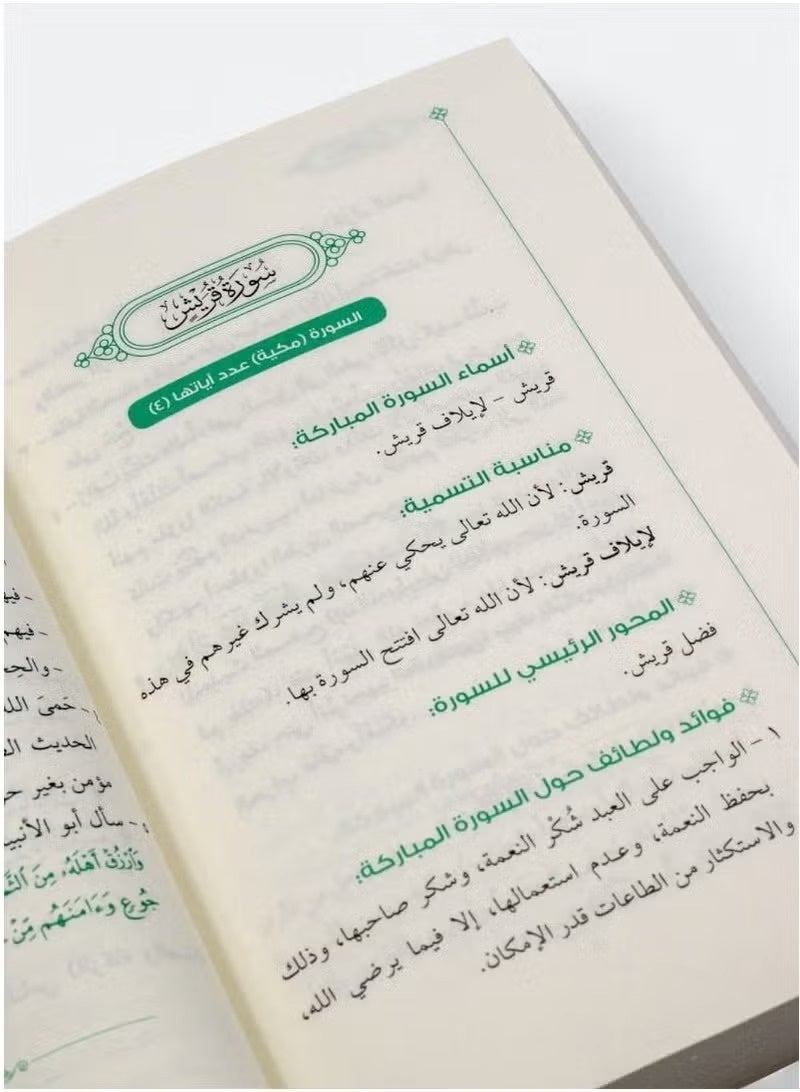 سُورَةُ قُرَيْشٍ
السورة (مكية) عدد آياتها (٤)
أسماء السورة المباركة:
قريش - لإيلاف قريش.
مناسبة التسمية:
قريش: لأن الله تعالى يحكي عنهم، ولم يشرك غيرهم في هذه
السورة.
لإيلاف قريش: لأن الله تعالى افتتح السورة بها.
المحور الرئيسي للسورة:
فضل قريش.
فوائد ولطائف حول السورة المباركة:
١ - الواجب على العبد شُكْر النعمة، وشكر صاحبها، وذلك
بحفظ النعمة، وعدم استعمالها، إلا فيما يرضي الله،
والاستكثار من الطاعات قدر الإمكان.
- فيهم
- حَمَىَ
الحديث
مؤمن بغير
- سأل أبو
وَارْزُقْ أَهْلَهُ مِنَ
جُوعٍ وَءَامَنَهُم مِّنْ